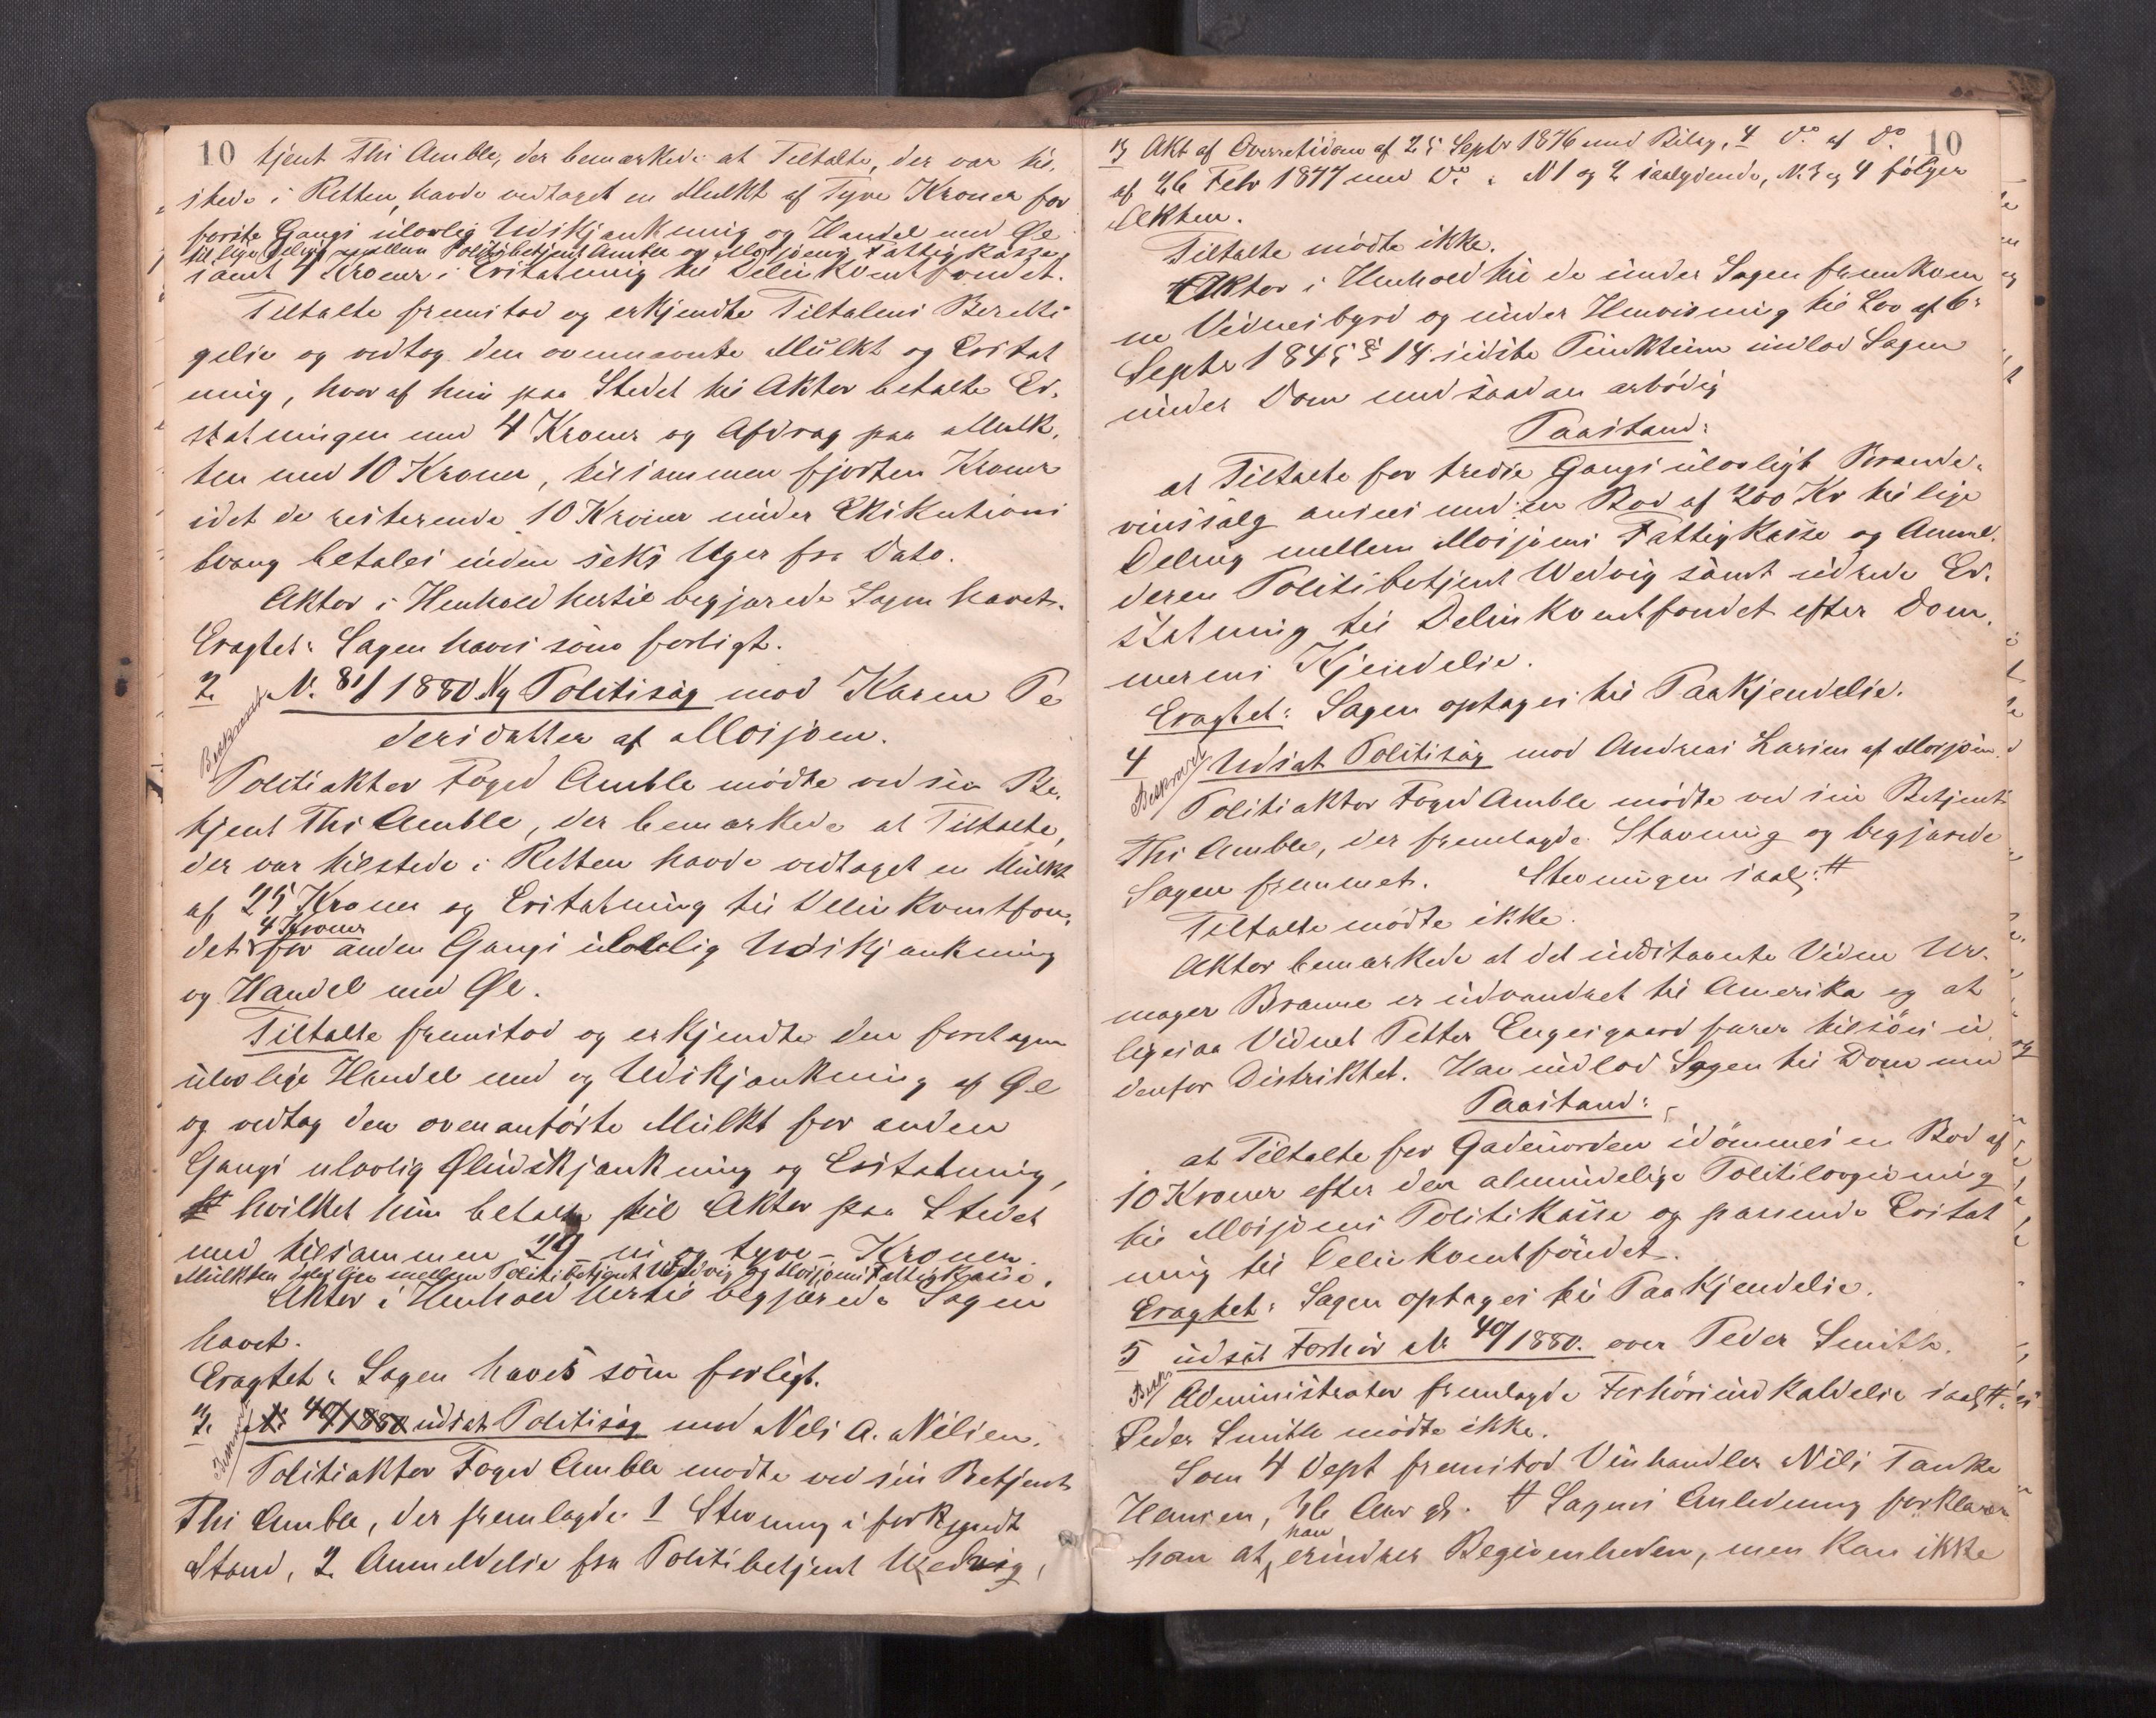 10 tjent Ths Amble, der bemærkede at Tiltalte, der var til¬
stede i Retten, havde vedtaget en Mulkt af Tyve Kroner for
første Gangs ulovlig Udskjænkning og Handel med Øl
til lige Deling mellem Politibetjent Amble og Mosjøens Fattigkasse
samt 4 Kroner i Erstatning til Delinkventfondet.
Tiltalte fremstod og erkjendte Tiltalens Beretti
gelse og vedtog den ovennævnte Mulkt og Erstat
ning, hvoraf hun paa Stedet til Aktor betalte Er¬
statningen med 4 Kroner og Afdrag paa Mulk¬
ten med 10 Kroner, tilsammen fjorten Kroner
idet de resterende 10 Kroner under Eksekutions
tvang betales inden seks Uger fra Dato.
Aktor i Henhold hertil begjærede Sagen hævet.
Eragtet: Sagen hæves som forligt.
2. N. 81/1880 Ny Politisag mod Karen Pe
dersdatter af Mosjøen.
Beskrevet
Politiaktor Foged Amble mødte ved sin Be¬
tjent Ths Amble, der bemærkede at Tiltalte,
der var tilstede i Retten havde vedtaget en Mulkt
af 25 Kroner og Erstatning til Delinkventfon¬
4 Kroner
det for anden Gangs ulovlig Udskjænkning
og Handel med Øl.
Tiltalte fremstod og erkjendte den foretagne
ulovlige Handel med og Udskjænkning af Øl
og vedtog den ovenanførte Mulkt for anden
Gangs ulovlig Øludskjænkning og Erstatning,
hvilket hun betalte til Aktor paa Stedet
med tilsammen 29 – ni og tyve – Kroner.
Mulkten deles lige mellem Politibetjent Wedvig og Mosjøens Fattigkasse.
Aktor i Henhold hertil begjærede Sagen
hævet.
Eragtet: Sagen hæves som forligt.
3. N. 40/1880 udsat Politisag mod Nels A. Nilsen.
Politiaktor Foged Amble mødte ved sin Betjent
Ths Amble, der fremlagde 1 Stevning i forkyndt
Stand, 2 Anmeldelse fra Politibetjent Wedvig,
10
3 Akt af Overretsdom af 25 Septr 1876 med Bilag, 4 Do af Do
af 26 Febr 1877 med Do. N 1 og 2 saalydende, N. 3 og 4 følger
Akten.
Tiltalte mødte ikke.
Aktor i Henhold til de under Sagen fremkom
ne Vidnesbyrd og under Henvisning til Lov af 6.
Septr 1845 § 14 sidste Punktum indlod Sagen
under Dom med saadan ærbødig
Paastand:
at Tiltalte for tredie Gangs ulovligt Brænde¬
vinssalg ansees med en Bod af 200 Kr til lige
Deling mellem Mosjøens Fattigkasse og Anmel¬
deren Politibetjent Wedvig samt udrede Er¬
statning til Delinkventfondet efter Dom¬
merens Kjendelse.
Eragtet: Sagen optages til Paakjendelse.
4 Udsat Politisag mod Andreas Larsen af Mosjøen
Beskrevet
Politiaktor Foged Amble mødte ved sin Betjent
Ths Amble, der fremlagde Stævning og begjærede
Sagen fremmet. Stevningen saal: #
Tiltalte mødte ikke.
Aktor bemærkede at det udstævnte Vidne Ur¬
mager Branne er udvandret til Amerika og at
ligesaa Vidnet Petter Engesgaard farer tilsøs u
denfor Distriktet. Han indlod Sagen til Dom med
Paastand:
at Tiltalte for Gadeuorden idømmes en Bod af
10 Kroner efter den almindelige Politilovgivning
til Mosjøens Politikasse og passende Erstat
ning til Delinkventfondet.
Eragtet: Sagen optages til Paakjendelse.
5 udsat Forhør N 40/1880. over Peder Smith.
Beskr
Administrator fremlagde Forhørsindkaldelse saal #.
Peder Smith mødte ikke.
Som 4 Dept fremstod Vinhandler Nils Tanke
Hansen, 36 Aar gl. I Sagens Anledning forklarer
han
han at, erindrer Begivenheden, men kan ikke